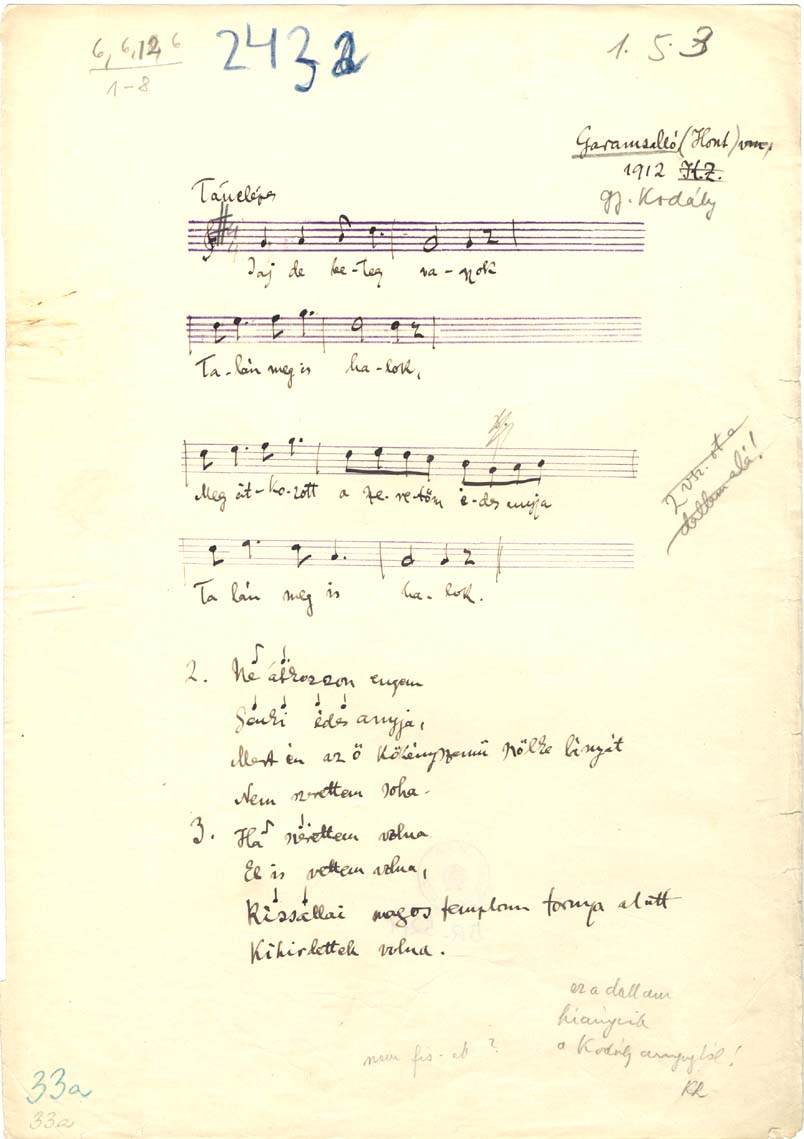 6, 6, 12, 6
1-8
2432
1. 5. 3
Garamsalló (Hont) vm,
1912 H.Z.
gy. Kodály
Tánclépés
Jaj de be-teg va-nyok
Ta-lán meg is ha-lok,
Meg át-ko-zott a sze-re-tőm é-des anyja
Ta lán meg is ha-lok.
2 vsz. ot a
dallam alá!
2. Ne átkozzon engem
Senki édes anyja,
Mert én az ő kökényszemü szőlke lányát
Nem szerettem soha.
3. Ha szerettem volna
El is vettem volna,
Kissallai magos templom tornya alatt
Kihirdettek volna.
ez a dallam
hiányzik
a Kodály anyagból!
nem fis-ek?
RR
33a
33a